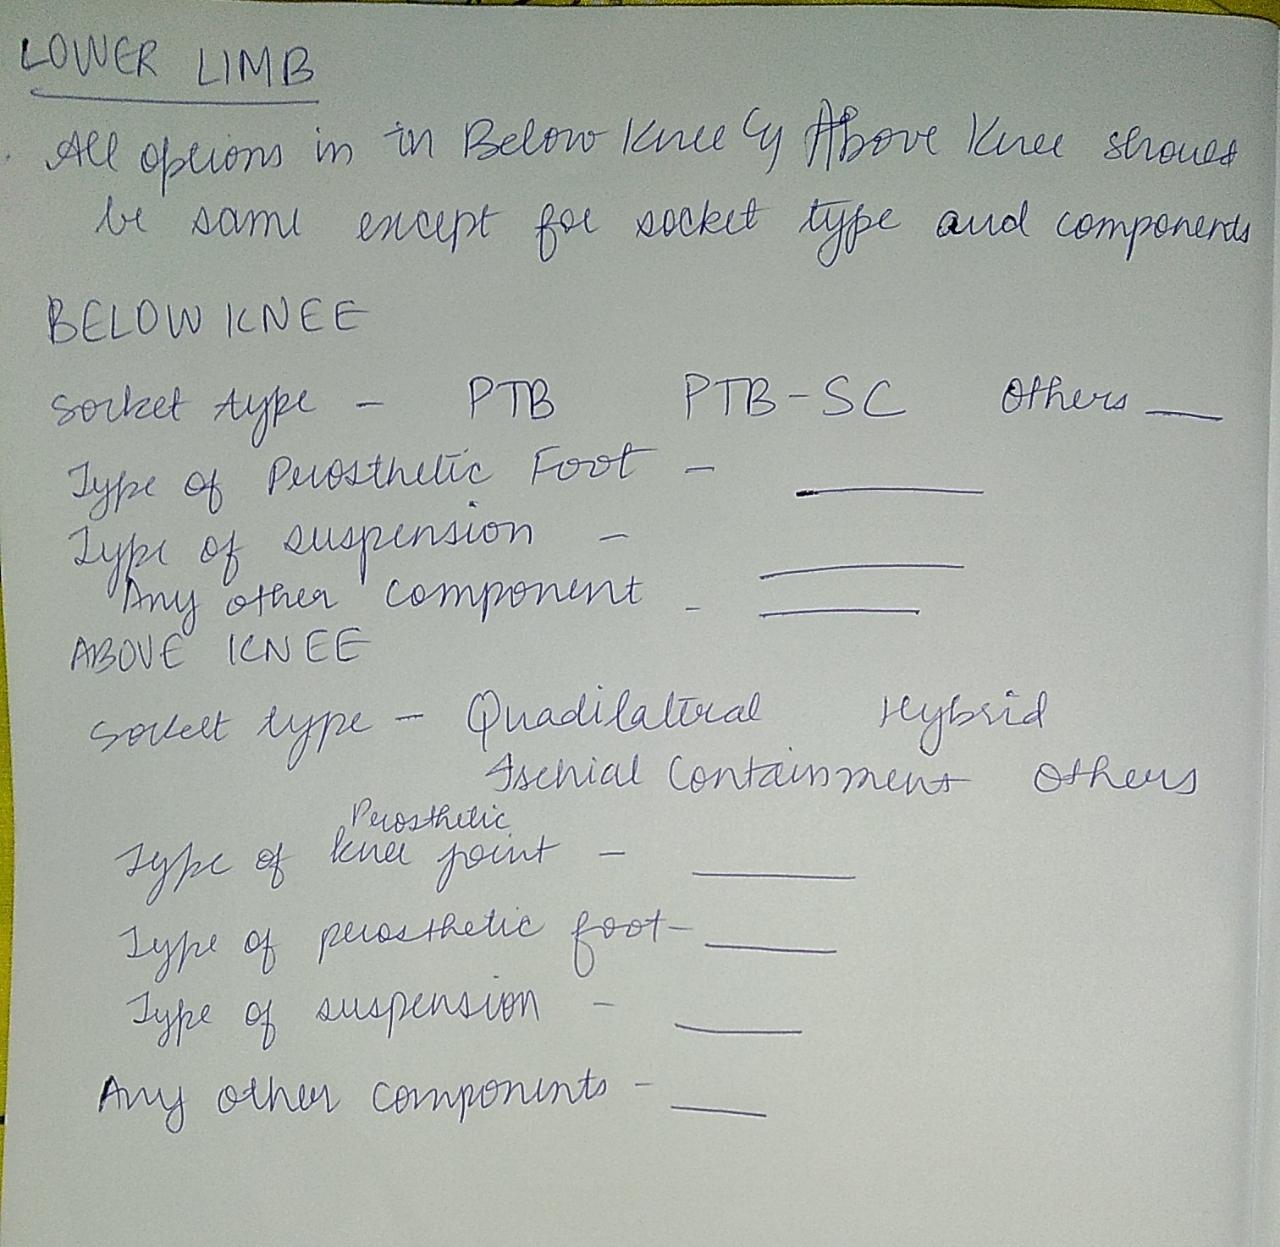 LOWER LIMB
All options in in Below Knee & Above Knee should
be same except for socket type and components
BELOW KNEE
Socket type - PTB PTB-SC Others __
Type of Prosthetic Foot - __
Type of suspension - __
Any other component - __
ABOVE KNEE
Socket type - Quadilateral Hybrid
Ischial Containment Others
Prosthetic
Type of knee joint - __
Type of prosthetic foot - __
Type of suspension - __
Any other components - __